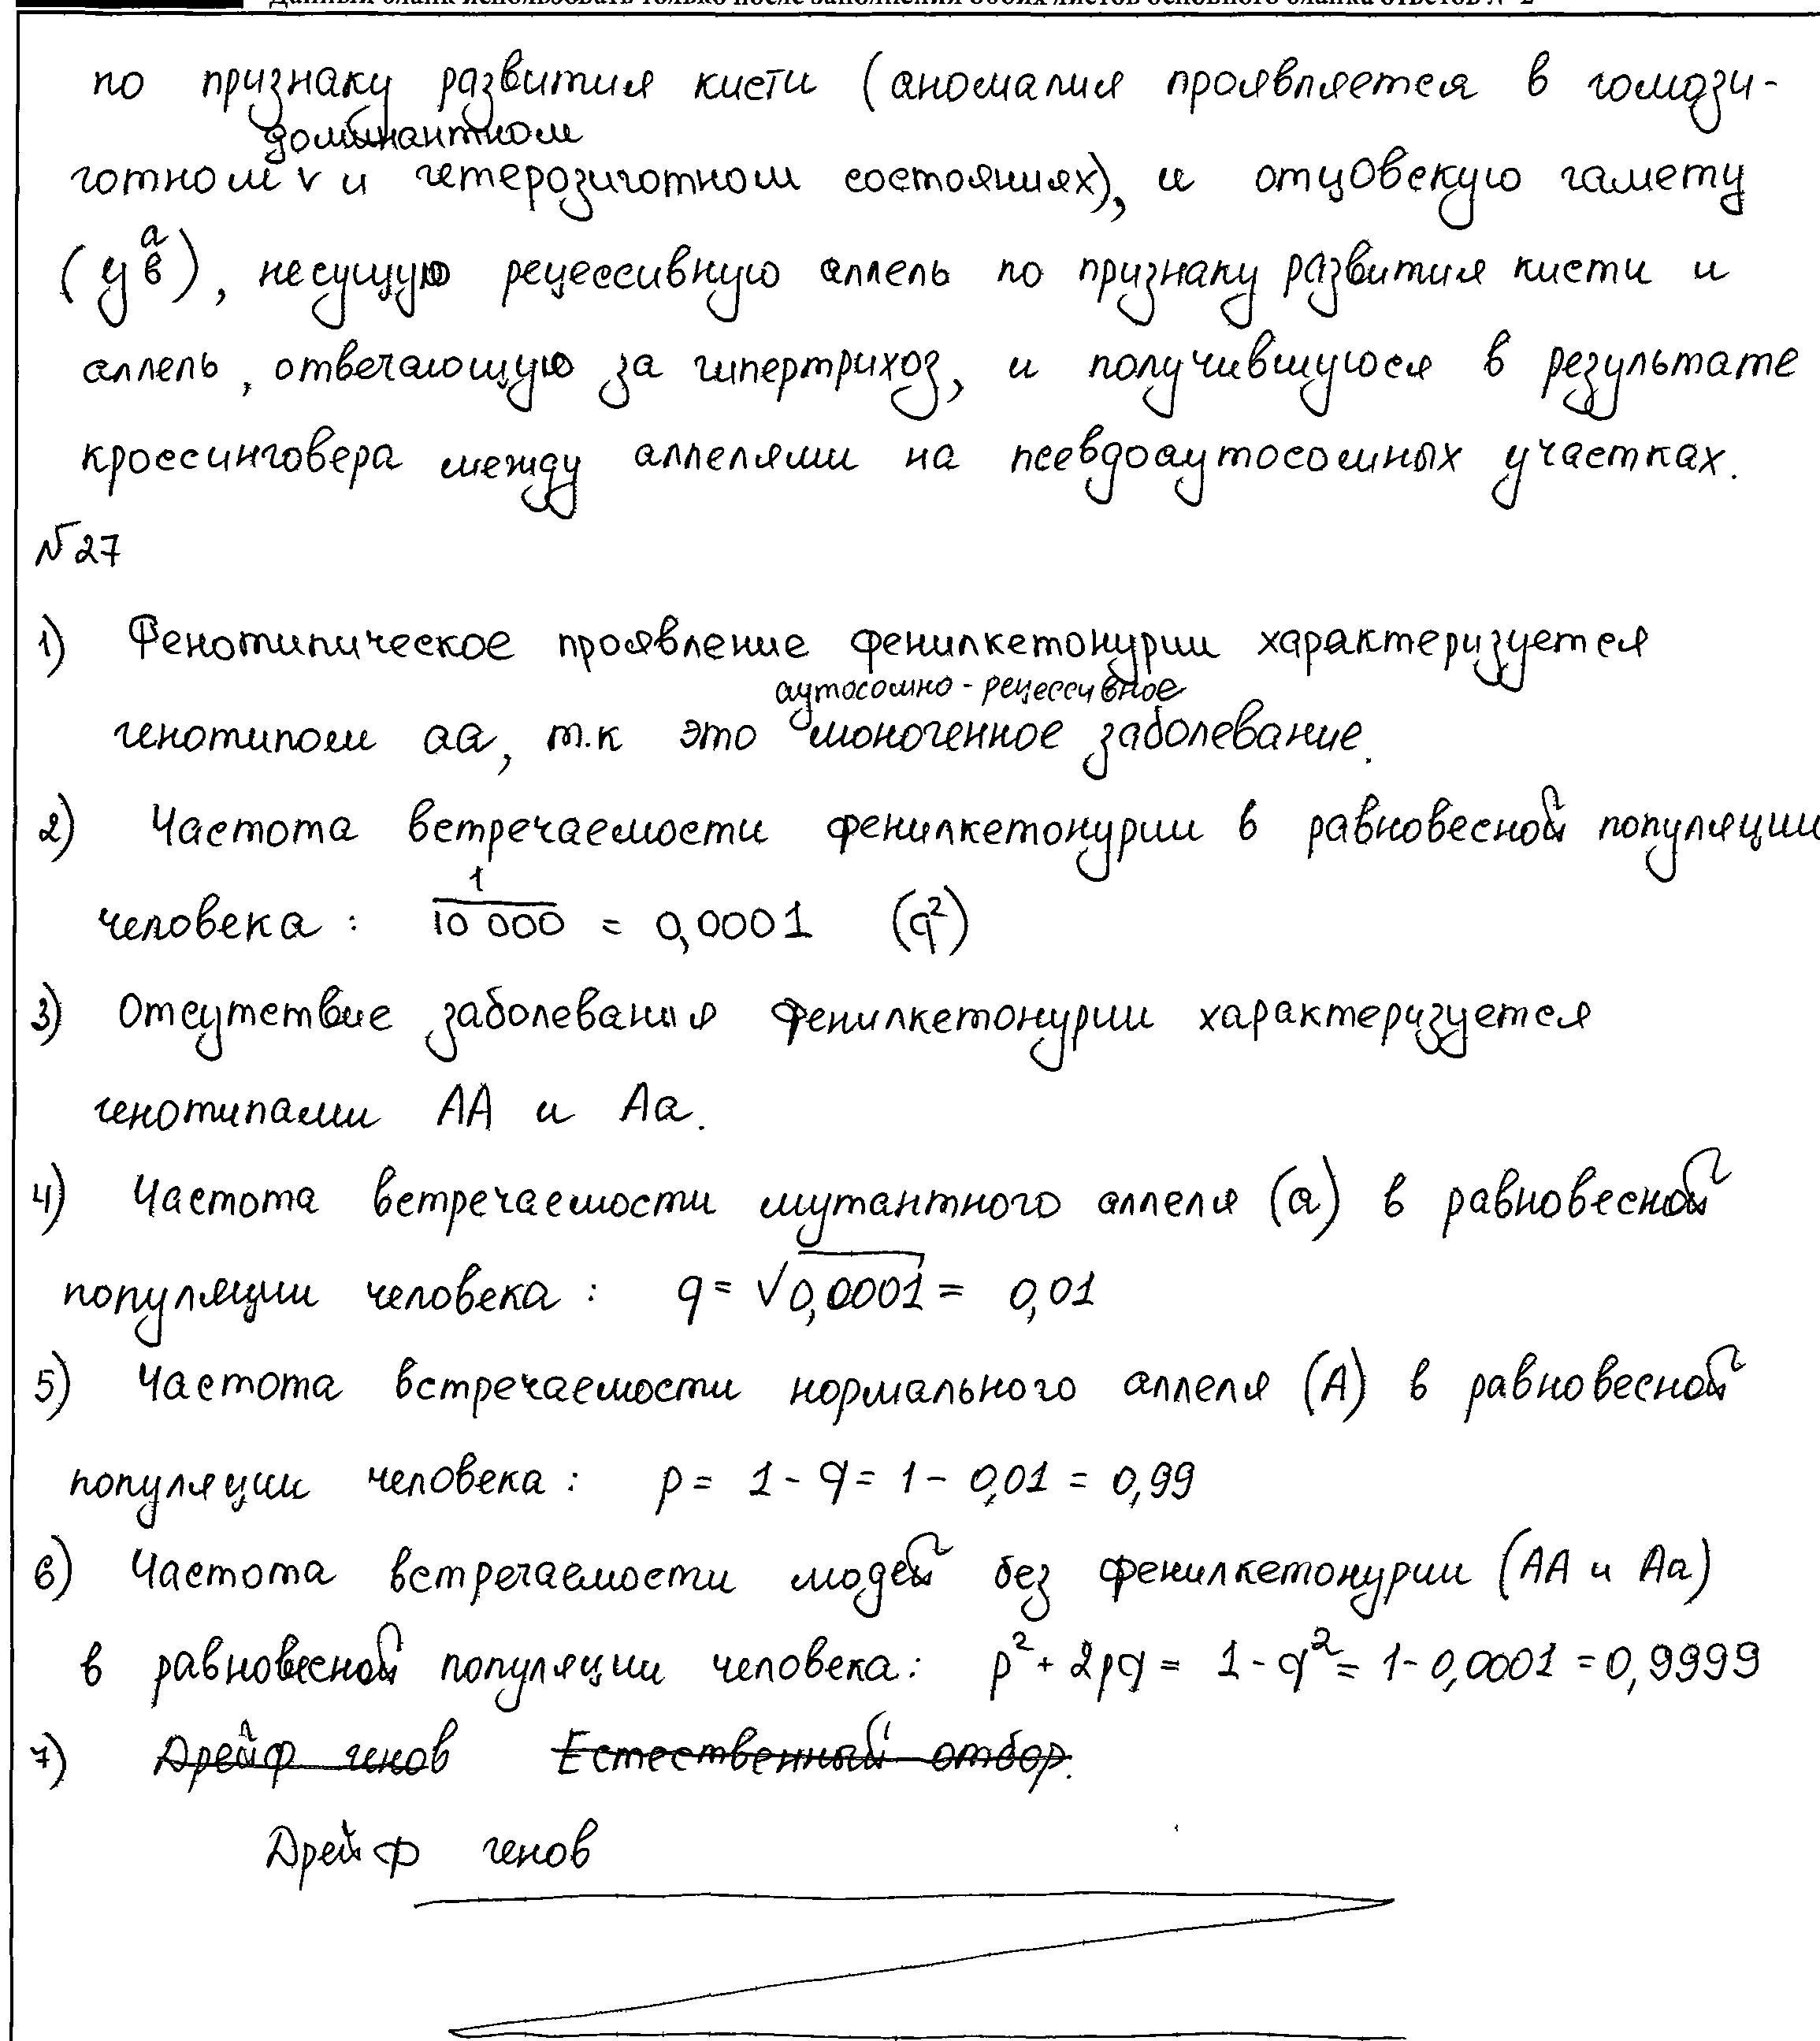 Данный бланк использовать только после заполнения обоих листов основного бланка ответов № 2
по признаку развития кисти (аномалия проявляется в гомози-
доминантном
готном v и гетерозиготном состояниях), и отцовскую гамету
(y a в), несущую рецессивную аллель по признаку развития кисти и
аллель, отвечающую за гипертрихоз, и получившуюся в результате
кроссинговера между аллелями на псевдоаутосомных участках.
№27
1) Фенотипическое проявление фенилкетонурии характеризуется
аутосомно-рецессивное
генотипом аа, т.к это моногенное заболевание.
2) Частота встречаемости фенилкетонурии в равновесной популяции
человека: 1/10 000 = 0,0001 (q²)
3) Отсутствие заболевания фенилкетонурии характеризуется
генотипами АА и Аа.
4) Частота встречаемости мутантного аллеля (а) в равновесной
популяции человека: q = √0,0001 = 0,01
5) Частота встречаемости нормального аллеля (А) в равновесной
популяции человека: p = 1 - q = 1 - 0,01 = 0,99
6) Частота встречаемости людей без фенилкетонурии (АА и Аа)
в равновесной популяции человека: p² + 2pq = 1 - q² = 1 - 0,0001 = 0,9999
7) Дрейф генов Естественный отбор.
Дрейф генов